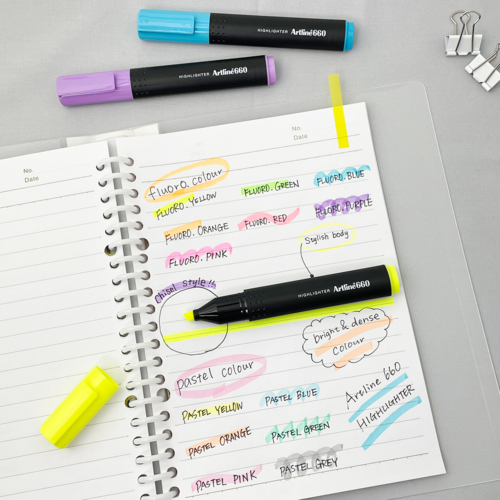 HIGHLIGHTER Artline660
HIGHLIGHTER Artline660
No.
Date
No.
Date
fluoro. colour
FLUORO. YELLOW
FLUORO. GREEN
FLUORO. BLUE
FLUORO. ORANGE
FLUORO. RED
FLUORO. PURPLE
FLUORO. PINK
Stylish body
chisel style!!
HIGHLIGHTER Artline660
bright & dense
colour
pastel colour
PASTEL YELLOW
PASTEL BLUE
PASTEL ORANGE
PASTEL GREEN
PASTEL PINK
PASTEL GREY
Artline 660
HIGHLIGHTER